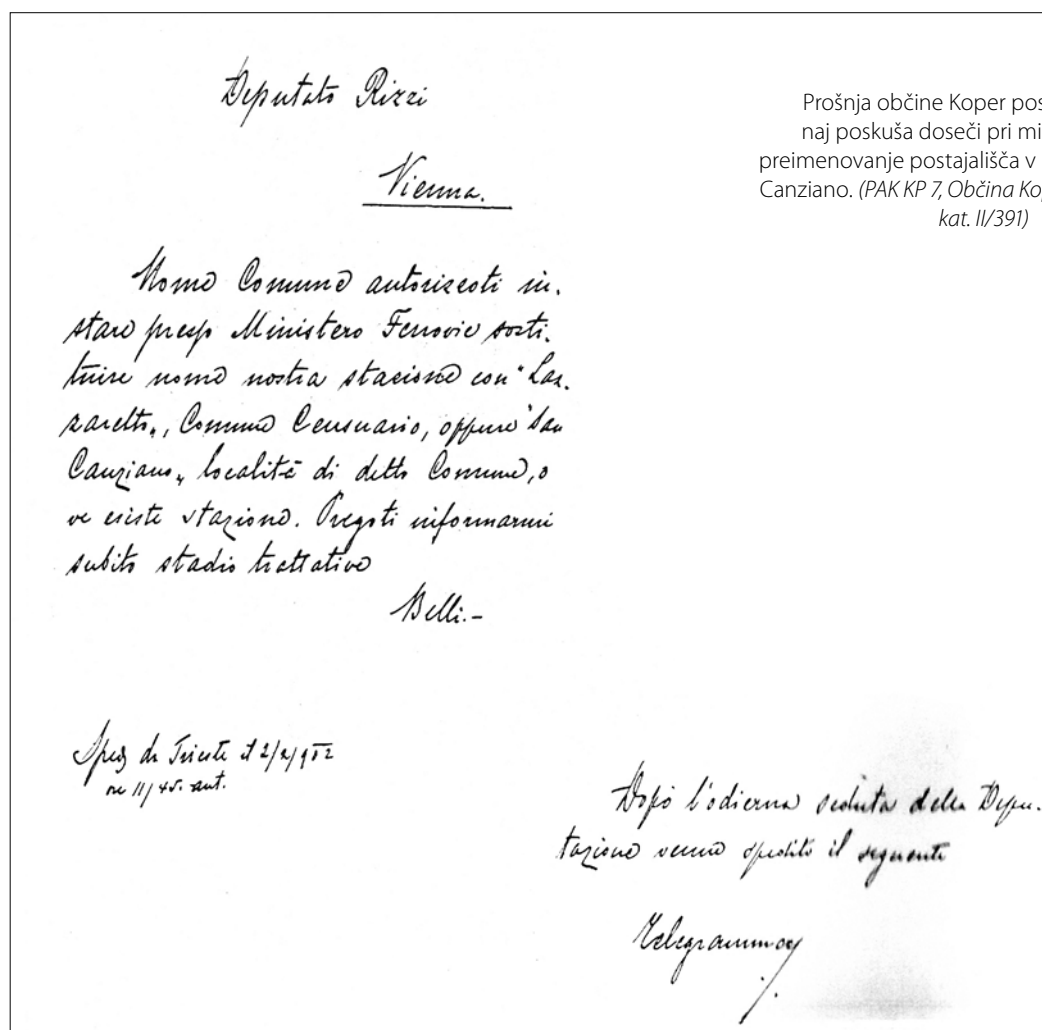 Deputato Rizzi
Vienna.
Nome Comune autorizzoti in.
stare presso Ministero Ferrovie sosti.
tuire nome nostra stazione con "Laz.
zaretto„, Comune Censuario, oppure "San
Canziano„ località di detto Comune, o
ve esiste stazione. Pregoti informarmi
subito stadio trattative
Belli.-
Sped da Trieste il 2/2/902
ore 11/45. ant.
Dopo l'odierna seduta della Depu.
tazione venne spedito il seguente
Telegramma
Prošnja občine Koper pos
naj poskuša doseči pri mi
preimenovanje postajališča v
Canziano. (PAK KP 7, Občina Kop
kat. II/391)